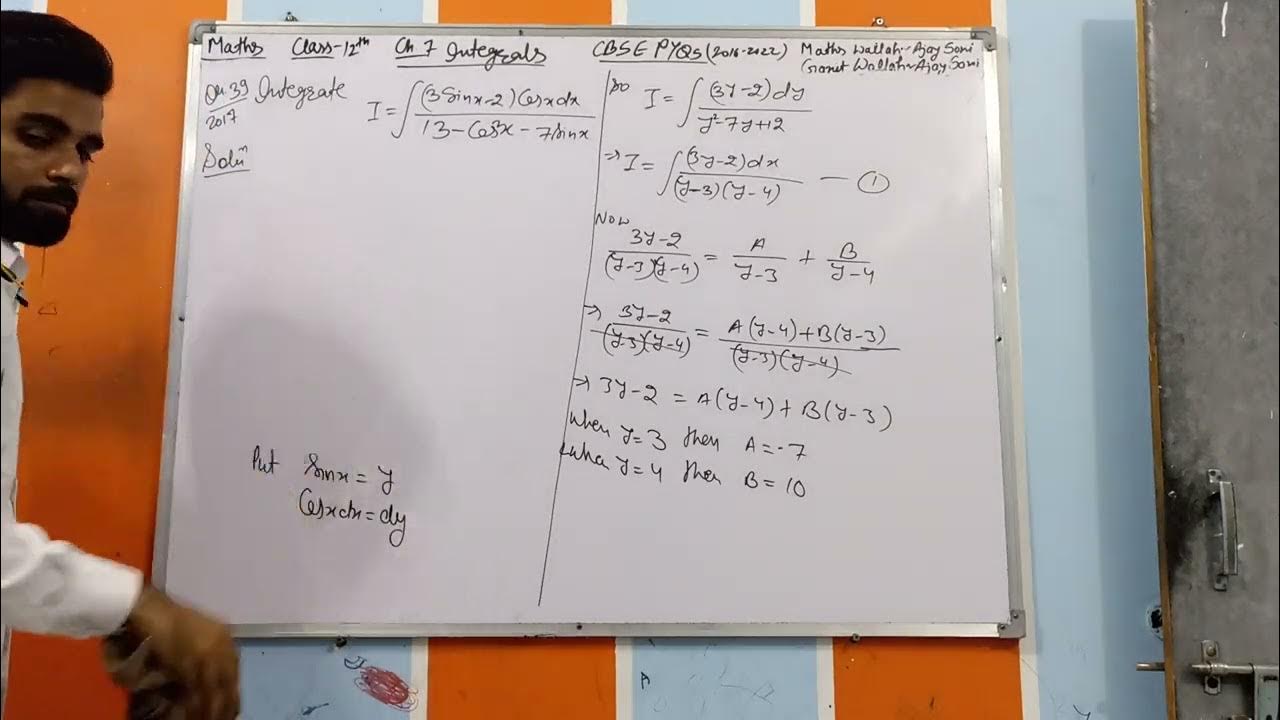 Maths Class-12th Ch 7 Integrals CBSE PYQs (2016-2022) Maths Wallah-Ajay Soni
(Ganit Wallah-Ajay Soni)
Qu.39 Integrate I = ∫ (3Sinx-2) Cosx dx / 13-Cos²x-7Sinx
2017
Soluⁿ
Put Sinx = y
Cosxdx = dy
So I = ∫ (3y-2) dy / y²-7y+12
⇒ I = ∫ (3y-2) dx / (y-3)(y-4) — ①
Now
3y-2 / (y-3)(y-4) = A / y-3 + B / y-4
⇒ 3y-2 / (y-3)(y-4) = A(y-4)+B(y-3) / (y-3)(y-4)
⇒ 3y-2 = A(y-4)+B(y-3)
When y=3 then A=-7
When y=4 then B=10